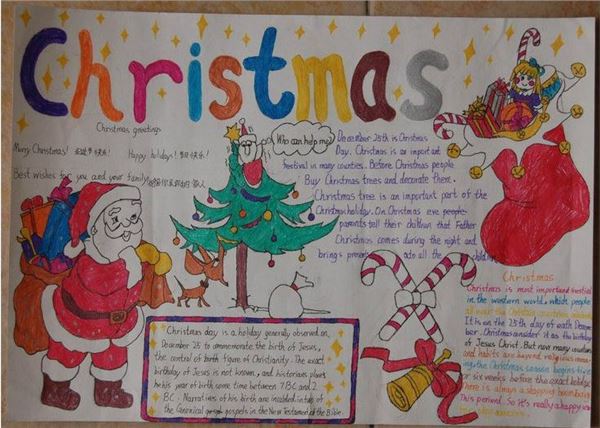 Christmas
Christmas greetings
Merry Christmas! 圣诞节快乐!
Happy holidays! 节日快乐!
Best wishes for you and your family!
Who can help me?
December 25th is Christmas
Day. Christmas is an important
festival in many counties. Before Christmas people
Buy Christmas trees and decorate them.
Christmas tree is an important part of the
Christmas holiday. On Christmas eve people
parents tell their children that Father
Christmas comes during the night and
brings presents to all the children
Christmas day is a holiday generally observed on
December 25 to commemorate the birth of Jesus,
the central of birth figure of Christianity. The exact
birthday of Jesus is not known, and historians place
his year of birth some time between 7 BC and 2
BC. Narratives of his birth are included in two of
the Canonical gospels in the New Testament of the Bible.
Christmas
Christmas is most important festival
in the western world. which people
all over the
It is on the 25th day of
Christmas consider it as the birthday
of Jesus Christ. But now many countries
and habits are beyond religious meaning
the Christmas season begins five
or six weeks before the exact holiday
There is always a shopping boom
This period. So It's really a happy